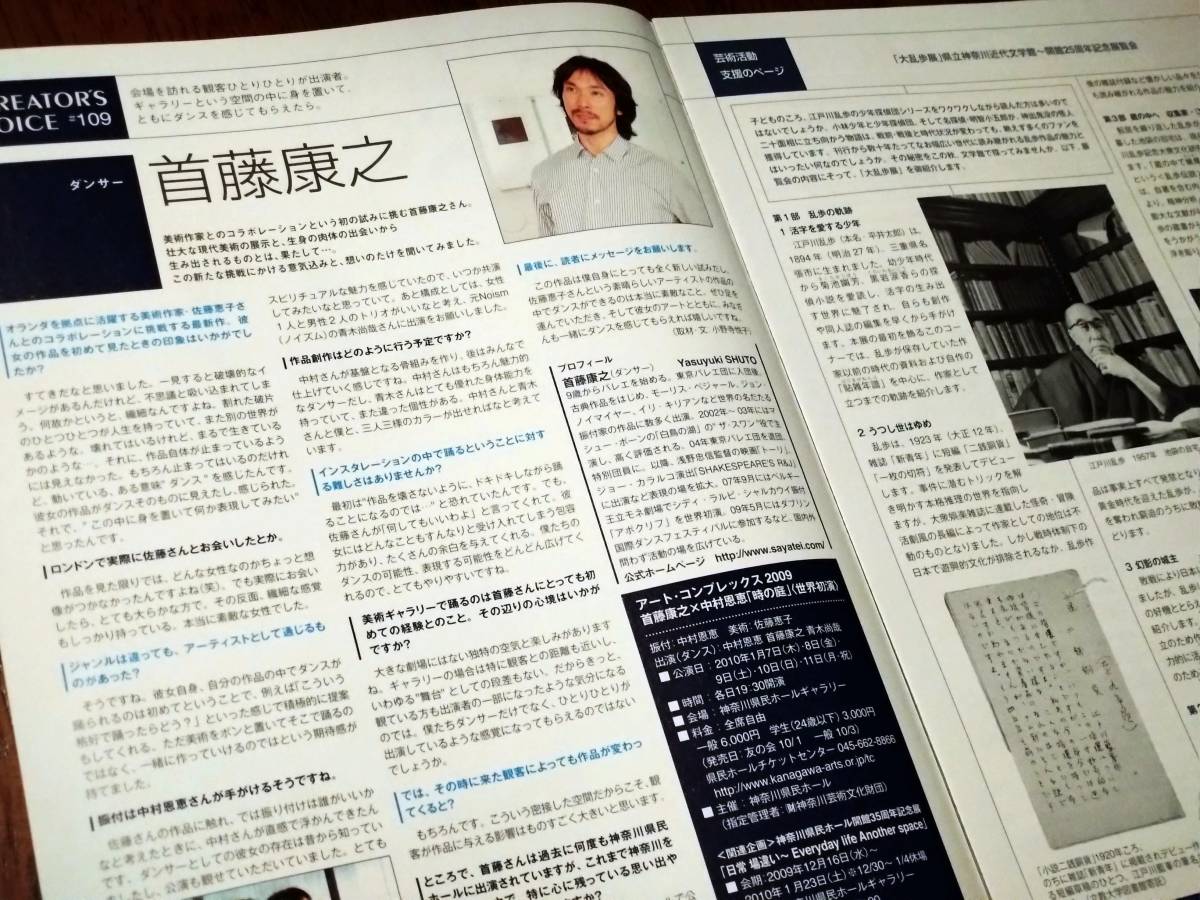 CREATOR'S
VOICE #109
会場を訪れる観客ひとりひとりが出演者。
ギャラリーという空間の中に身を置いて、
ともにダンスを感じてもらえたら。
ダンサー
首藤康之
美術作家とのコラボレーションという初の試みに挑む首藤康之さん。
壮大な現代美術の展示と、生身の肉体の出会いから
生み出されるものとは、果たして…。
この新たな挑戦にかける意気込みと、想いのたけを聞いてみました。
オランダを拠点に活躍する美術作家・佐藤恵子さ
んとのコラボレーションに挑戦する最新作。彼
女の作品を初めて見たときの印象はいかがでし
たか？
すてきだなと思いました。一見すると破壊的なイ
メージがあるんだけれど、不思議と吸い込まれてしま
う、何故かというと、繊細なんですよね。割れた破片
のひとつひとつが人生を持っていて、また別の世界が
あるような。壊れてはいるけれど、まるで生きている
かのような…。それに、作品自体が止まっているよう
には見えなかった。もちろん止まってはいるのだけれ
ど、動いている、ある意味“ダンス”を感じたんです。
彼女の作品がダンスそのものに見えたし、感じられた。
それで、“この中に身を置いて何か表現してみたい”
と思ったんです。
ロンドンで実際に佐藤さんとお会いしたとか。
作品を見た限りでは、どんな女性なのかちょっと想
像がつかなかったんですよね（笑）。でも実際にお会い
したら、とても大らかな方で、その反面、繊細な感覚
もしっかり持っている。本当に素敵な女性でした。
ジャンルは違っても、アーティストとして通じるも
のがあった？
そうですね。彼女自身、自分の作品の中でダンスが
踊られるのは初めてということで、例えば「こういう
格好で踊ったらどう？」といった感じで積極的に提案
もしてくれる。ただ美術をポンと置いてそこで踊るの
ではなく、一緒に作っていけるのではという期待感が
持てました。
振付は中村恩恵さんが手がけるそうですね。
佐藤さんの作品に触れ、では振り付けは誰がいいか
なと考えたときに、中村さんが直感で浮かんできたん
です。ダンサーとしての彼女の存在は昔から知ってい
ましたし、公演も観せていただいていました。とても
スピリチュアルな魅力を感じていたので、いつか共演
してみたいなと思っていて。あと構成としては、女性
1人と男性2人のトリオがいいなと考え、元Noism
（ノイズム）の青木尚哉さんに出演をお願いしました。
作品創作はどのように行う予定ですか？
中村さんが基盤となる骨組みを作り、後はみんなで
仕上げていく感じですね。中村さんはもちろん魅力的
なダンサーだし、青木さんはとても優れた身体能力を
持っていて、また違った個性がある。中村さんと青木
さんと僕と、三人三様のカラーが出せればなと考えて
います。
インスタレーションの中で踊るということに対す
る難しさはありませんか？
最初は“作品を壊さないように、ドキドキしながら踊
ることになるのでは…”と恐れていたんです。でも、
佐藤さんが「何してもいいわよ」と言ってくれて。彼
女にはどんなこともすんなりと受け入れてしまう包容
力があり、たくさんの余白を与えてくれる。僕たちの
ダンスの可能性、表現する可能性をどんどん広げてく
れるので、とてもやりやすいですね。
美術ギャラリーで踊るのは首藤さんにとっても初
めての経験とのこと。その辺りの心境はいかが
ですか？
大きな劇場にはない独特の空気と楽しみがあります
ね。ギャラリーの場合は特に観客との距離も近いし、
いわゆる“舞台”としての段差もない。だからきっと、
観ている方も出演者の一部になったような気分になる
のでは。僕たちダンサーだけでなく、ひとりひとりが
出演しているような感覚になってもらえるのではない
でしょうか。
では、その時に来た観客によっても作品が変わっ
てくると？
もちろんです。こういう密接した空間だからこそ、観
客が作品に与える影響はものすごく大きいと思います。
ところで、首藤さんは過去に何度も神奈川県民
ホールに出演されていますが、これまで神奈川を
中で、特に心に残っている思い出や
最後に、読者にメッセージをお願いします。
この作品は僕自身にとっても全く新しい試みだし、
佐藤恵子さんという素晴らしいアーティストの作品の
中でダンスができるのは本当に素敵なこと。ぜひ足を
運んでいただき、そして彼女のアートとともに、みなさ
んも一緒にダンスを感じてもらえれば嬉しいですね。
（取材・文：小野寺悦子）
プロフィール
首藤康之（ダンサー） Yasuyuki SHUTO
9歳からバレエを始める。東京バレエ団に入団後、
古典作品をはじめ、モーリス・ベジャール、ジョン・
ノイマイヤー、イリ・キリアンなど世界の名だたる
振付家の作品に数多く出演。2002年～03年にはマ
シュー・ボーンの「白鳥の湖」の“ザ・スワン”役で主
演し、高く評価される。04年東京バレエ団を退団、
特別団員に。以降、浅野忠信監督の映画「トーリ」、
ジョー・カラルコ演出「SHAKESPEARE'S R&J」
に出演など表現の場を拡大。07年9月にはベルギー
王立モネ劇場でシディ・ラルビ・シャルカウイ振付
「アポクリフ」を世界初演。09年5月にはダブリン
国際ダンスフェスティバルに参加するなど、国内外
問わず活動の場を広げている。
公式ホームページ http://www.sayatei.com/
アート・コンプレックス 2009
首藤康之×中村恩恵「時の庭」（世界初演）
振付：中村恩恵 美術：佐藤恵子
出演（ダンス）：中村恩恵 首藤康之 青木尚哉
■ 公演日：2010年1月7日（木）・8日（金）・
9日（土）・10日（日）・11日（月・祝）
■ 時間：各日19:30開演
■ 会場：神奈川県民ホールギャラリー
■ 料金：全席自由
一般 6,000円 学生（24歳以下）3,000円
（発売日：友の会 10/1 一般 10/3）
県民ホールチケットセンター 045-662-8866
http://www.kanagawa-arts.or.jp/tc
■ 主催：神奈川県民ホール
（指定管理者：（財）神奈川芸術文化財団）
＜関連企画＞神奈川県民ホール開館35周年記念展
「日常 場違い～Everyday life Another space」
■ 会期：2009年12月16日（水）～
2010年1月23日（土）※12/30～1/4休場
神奈川県民ホールギャラリー
芸術活動
支援のページ
「大乱歩展」県立神奈川近代文学館～開館25周年記念展覧会
子どものころ、江戸川乱歩の少年探偵団シリーズをワクワクしながら読んだ方は多いので
はないでしょうか。小林少年と少年探偵団、そして名探偵・明智小五郎が、神出鬼没の怪人
二十面相に立ち向かう物語は、戦前・戦後と時代状況が変わっても、絶えず多くのファンを
獲得しています。刊行から数十年たってなお幅広い世代に読み継がれる乱歩作品の魅力と
はいったい何なのでしょうか。その秘密をこの秋、文学館で探ってみませんか。以下、展
覧会の内容にそって、「大乱歩展」を御紹介します。
第1部 乱歩の軌跡
1 活字を愛する少年
江戸川乱歩（本名・平井太郎）は、
1894年（明治27年）、三重県名
張市に生まれました。幼少年時代
から菊池幽芳、黒岩涙香らの探
偵小説を愛読し、活字の生み出
す世界に魅了され、自らも創作
や同人誌の編集を早くから手がけ
ます。本展の最初を飾るこのコー
ナーでは、乱歩が保存していた作
家以前の時代の資料および自作の
「貼雑年譜」を中心に、作家として
立つまでの軌跡を紹介します。
2 うつし世はゆめ
乱歩は、1923年（大正12年）、
雑誌「新青年」に短編「二銭銅貨」
「一枚の切符」を発表してデビュー
します。事件に潜むトリックを解
き明かす本格推理の世界を指向し
ますが、大衆娯楽雑誌に連載した怪奇・冒険
活劇風の長編によって作家としての地位は不
動のものとなりました。しかし戦時体制下の
日本で遊興的文化が排除されるなか、乱歩作
江戸川乱歩 1957年
品は事実上すべて発禁とな
3 幻影の城主
「小説二銭銅貨」1920年ころ。